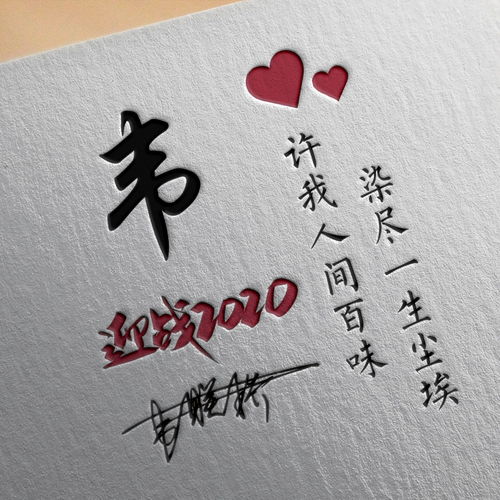 韦
迎战2020
染尽一生尘埃
许我人间百味